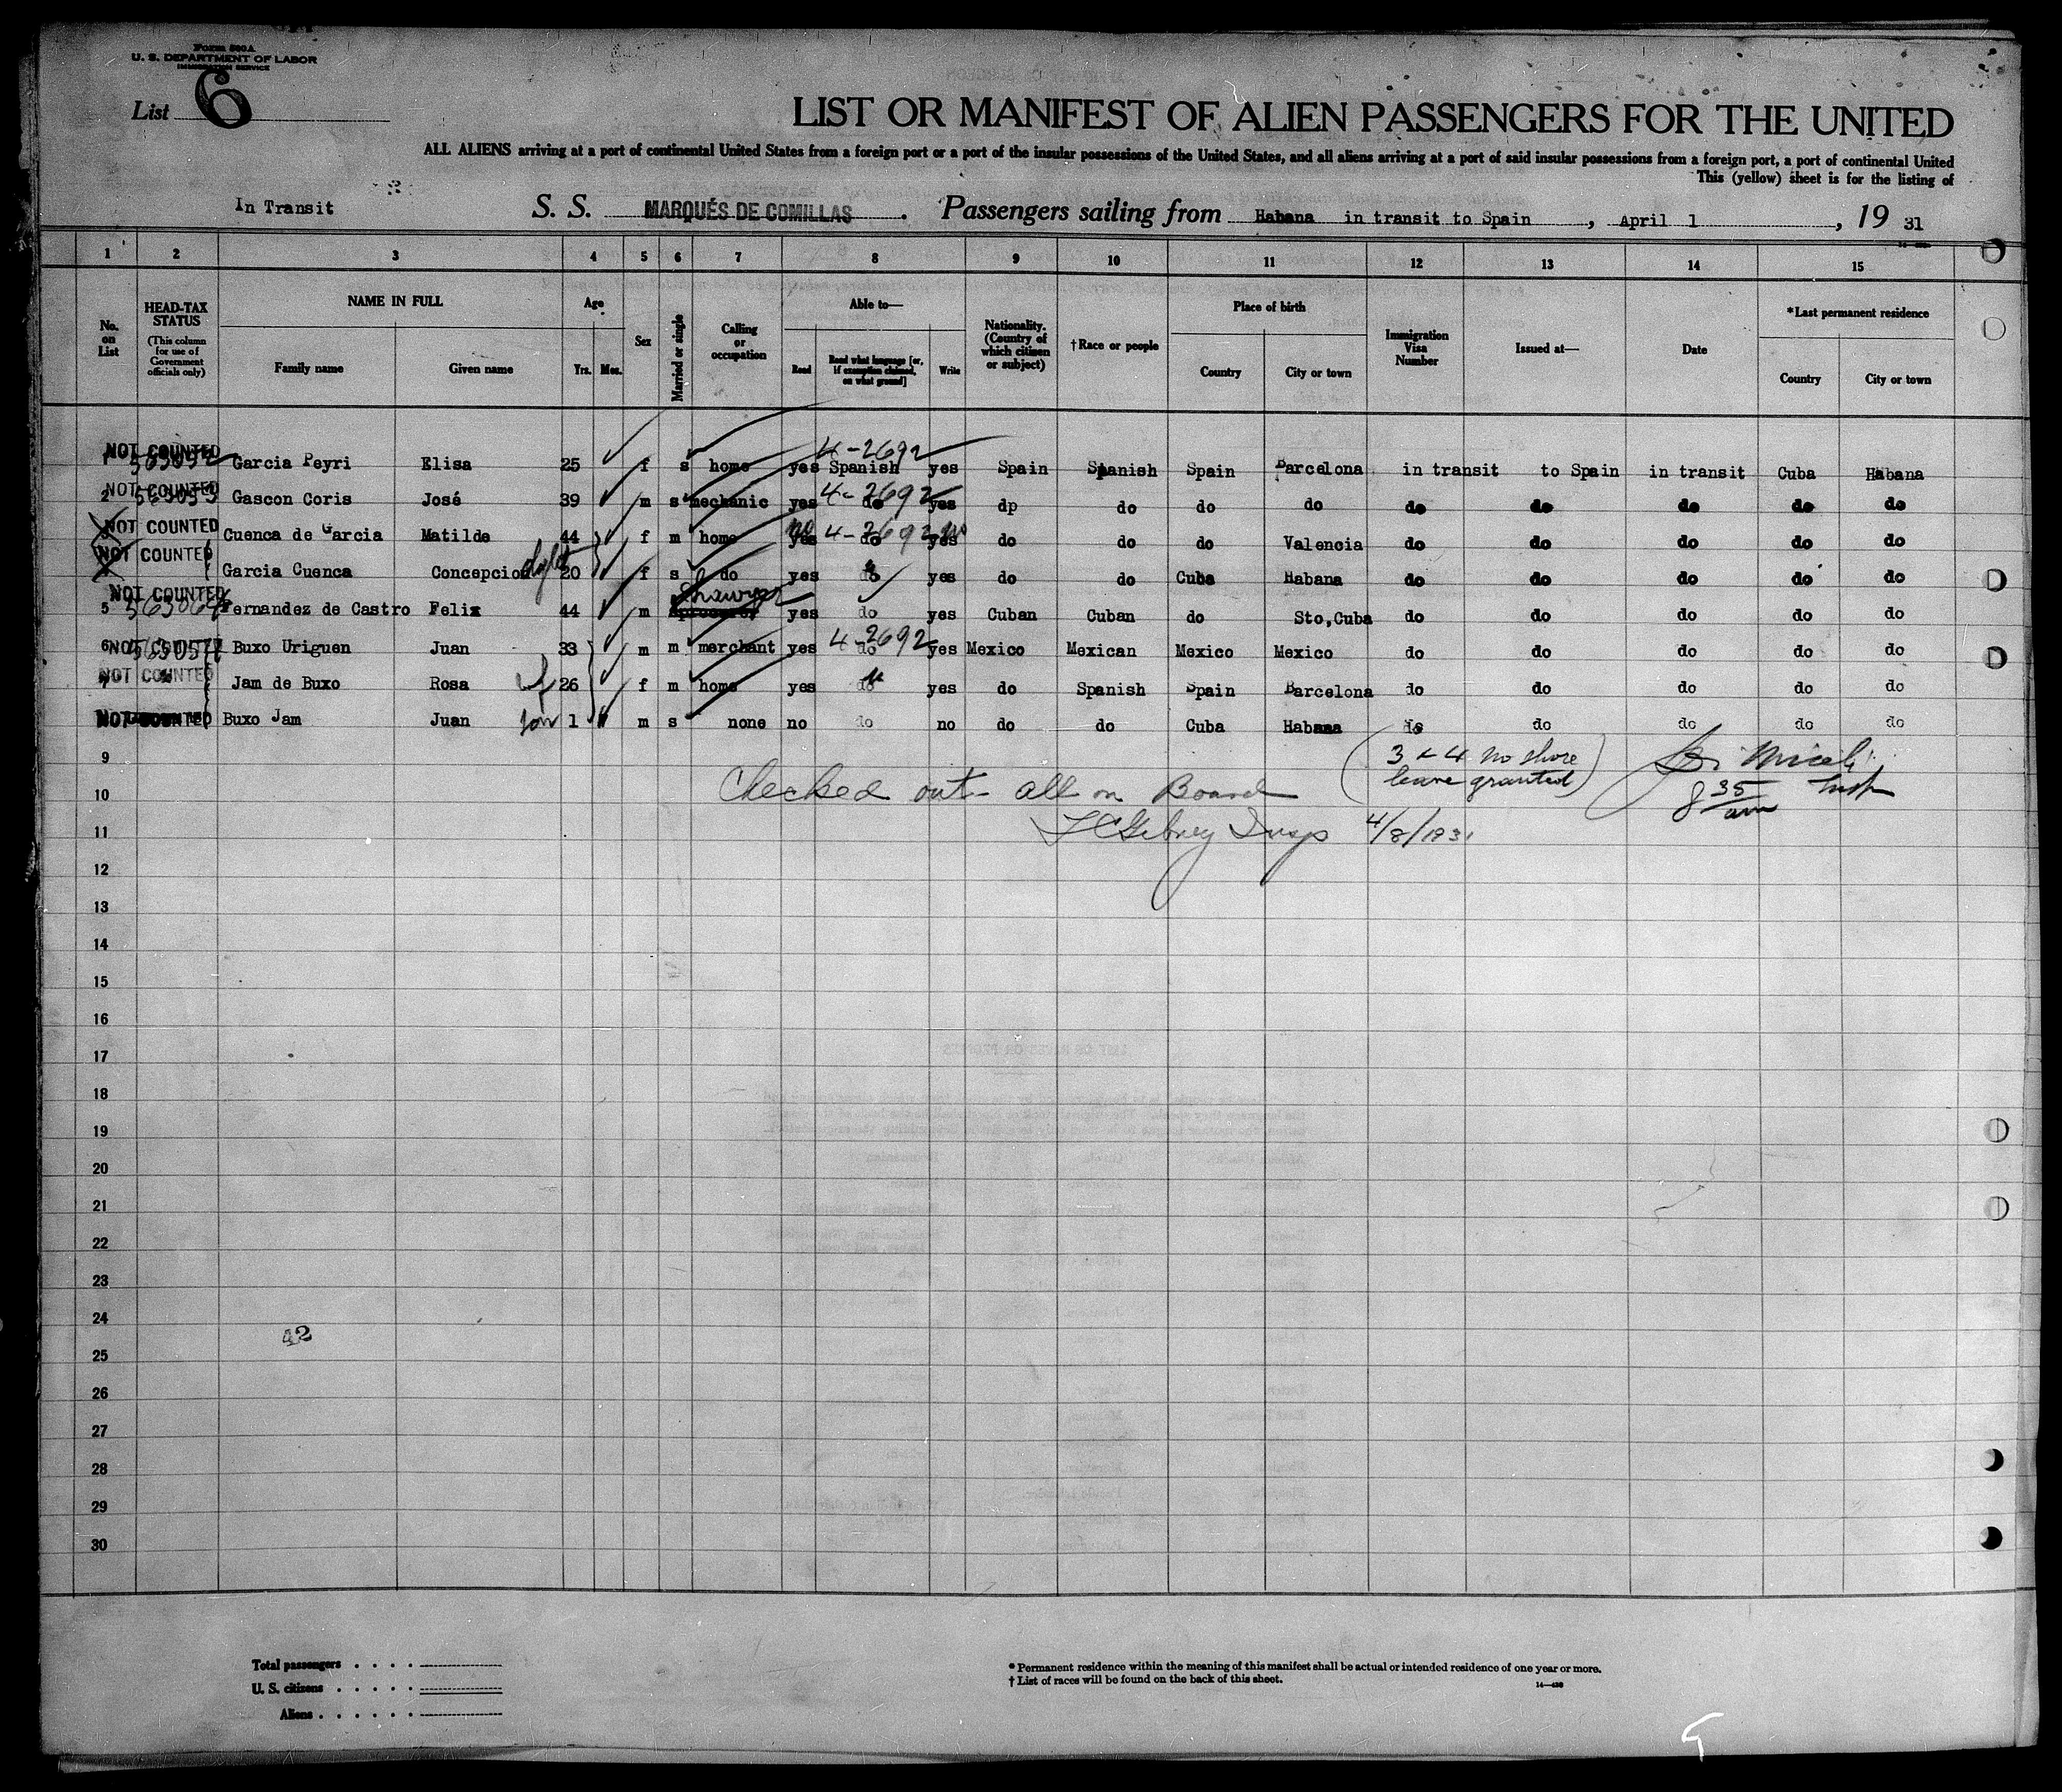 Form 500A
U. S. DEPARTMENT OF LABOR
IMMIGRATION SERVICE
List 6
LIST OR MANIFEST OF ALIEN PASSENGERS FOR THE UNITED
ALL ALIENS arriving at a port of continental United States from a foreign port or a port of the insular possessions of the United States, and all aliens arriving at a port of said insular possessions from a foreign port, a port of continental United
This (yellow) sheet is for the listing of
In Transit S. S. MARQUÉS DE COMILLAS . Passengers sailing from Habana in transit to Spain , April 1 , 19 31
1 2 3 4 5 6 7 8 9 10 11 12 13 14 15
No. on List
HEAD-TAX STATUS (This column for use of Government officials only)
NAME IN FULL Family name Given name
Age Yrs. Mos.
Sex
Married or single
Calling or occupation
Able to— Read Read what language [or, if exemption claimed, on what ground] Write
Nationality. (Country of which citizen or subject)
†Race or people
Place of birth Country City or town
Immigration Visa Number
Issued at—
Date
*Last permanent residence Country City or town
NOT COUNTED 4-2692
1 Garcia Peyri Elisa 25 f s home yes Spanish yes Spain Spanish Spain Barcelona in transit to Spain in transit Cuba Habana
NOT COUNTED
2 Gascon Coris José 39 m s mechanic yes do 4-2692 yes dp do do do do do do do do
NOT COUNTED
3 Cuenca de Garcia Matilde 44 f m home yes no do 4-2692 yes no do do do Valencia do do do do do
NOT COUNTED
Garcia Cuenca Concepcion 20 f s do yes do yes do do Cuba Habana do do do do do
NOT COUNTED
5 Fernandez de Castro Felix 44 m yes do yes Cuban Cuban do Sto,Cuba do do do do do
6 NOT COUNTED Buxo Uriguen Juan 33 m m merchant yes do 4-2692 yes Mexico Mexican Mexico Mexico do do do do do
NOT COUNTED
7 Jam de Buxo Rosa wf 26 f m home yes do yes do Spanish Spain Barcelona do do do do do
NOT COUNTED Buxo Jam Juan son 1 m s none no do no do do Cuba Habana do do do do do
9
(3 & 4 no shore leave granted)
10 Checked out - all on Board
8 35 am Insp
11 Insp 4/8/1931
12
13
14
15
16
17
18
19
20
21
22
23
24
42
25
26
27
28
29
30
Total passengers . . . .
U. S. citizens . . . . .
Aliens . . . . . .
* Permanent residence within the meaning of this manifest shall be actual or intended residence of one year or more.
† List of races will be found on the back of this sheet.